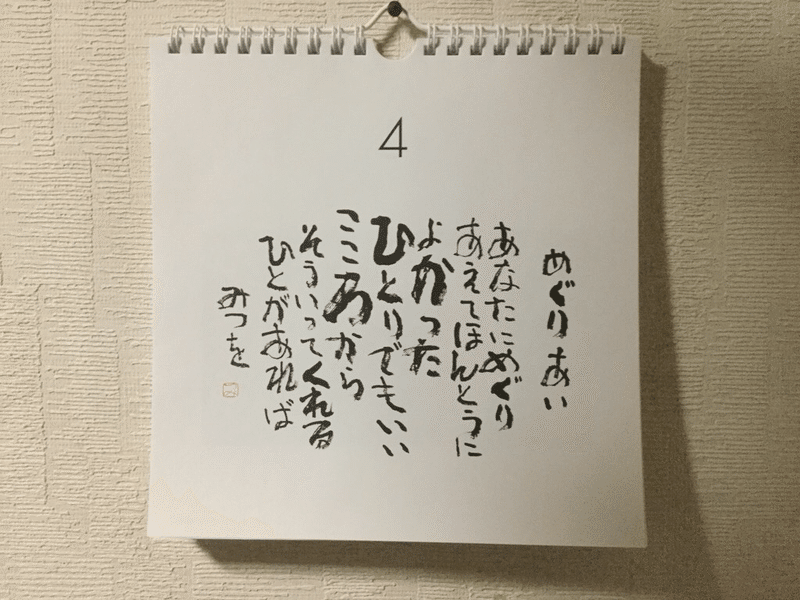 4
めぐりあい
あなたにめぐり
あえてほんとうに
よかった
ひとりでもいい
こころから
そういってくれる
ひとがあれば
みつを